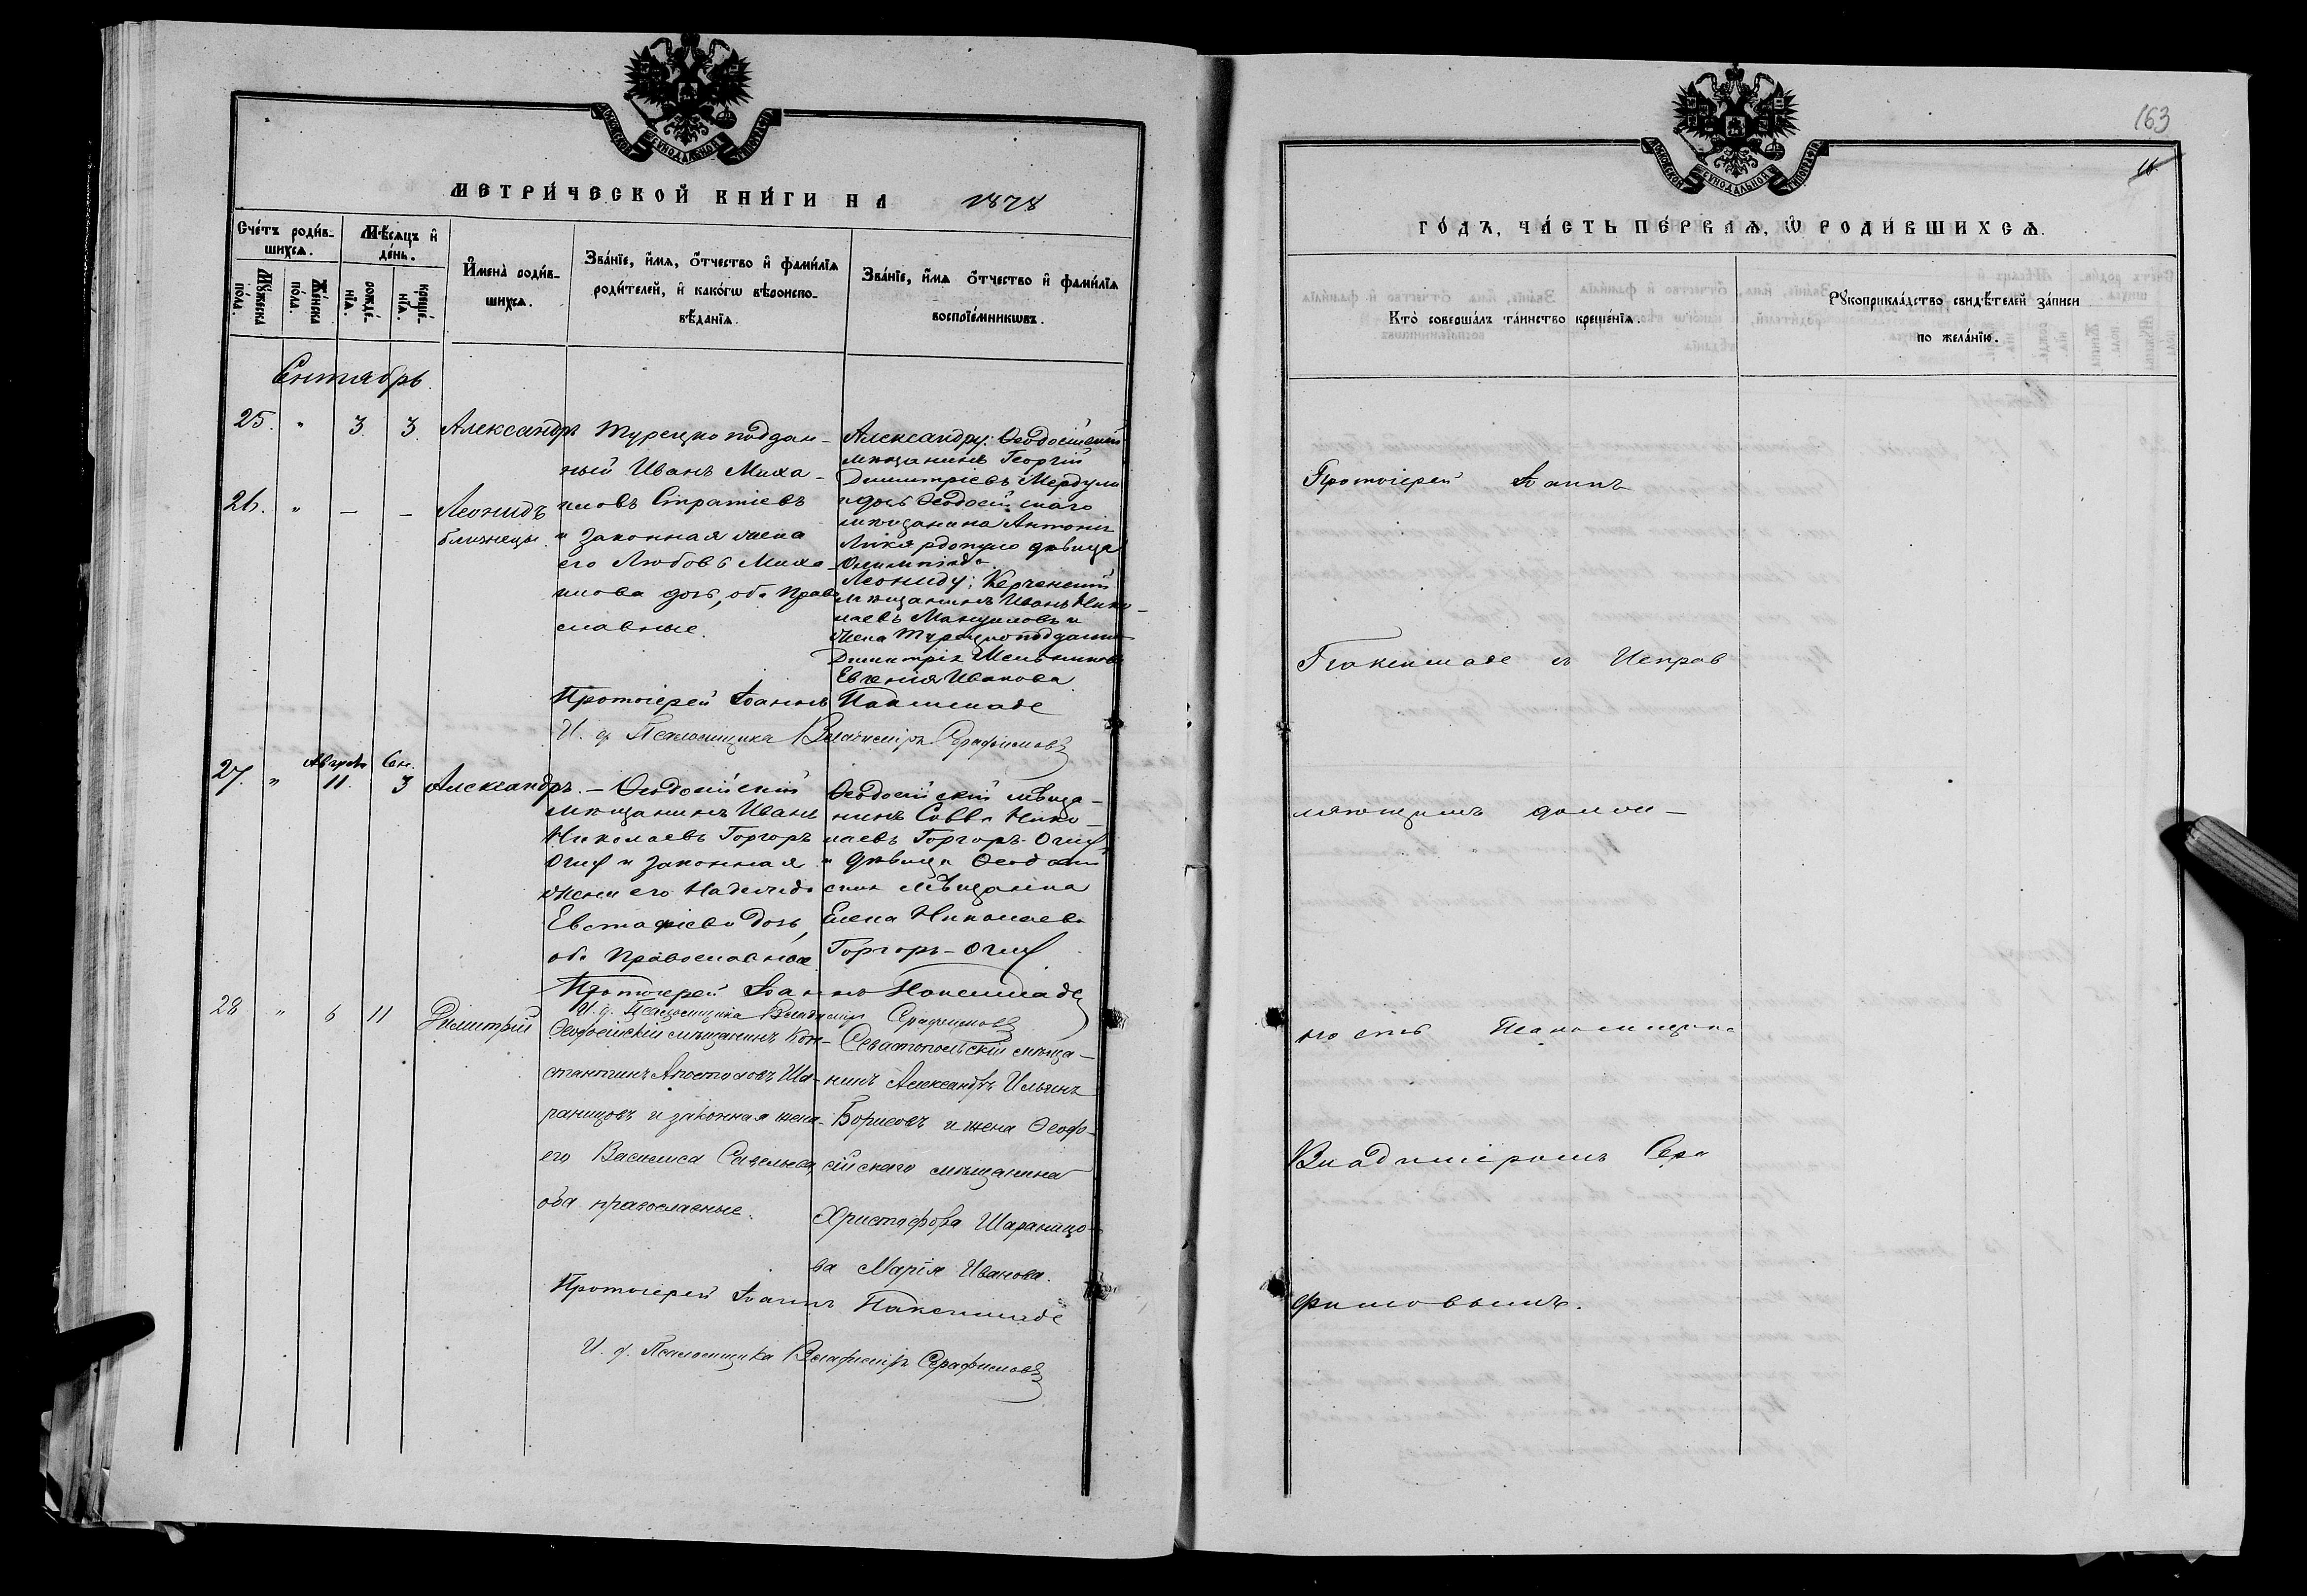 МЕТРИ́ЧЕСКОЙ КНИ́ГИ НА 1878
Сче́тъ роди́в-
шихся.
Мѣ́сяцъ и҆
де́нь.
Мꙋ́жеска
по́ла.
Же́нска
по́ла.
рожде́-
нїѧ.
креще́-
нїѧ.
И҆мена̀ роди́в-
шихся.
Зва́нїе, и҆́мѧ, ѻ҆́тчество и҆ фами́лїѧ
роди́телей, и҆ како́гѡ вѣроиспо-
вѣ́данїѧ.
Зва́нїе, и҆́мѧ ѻ҆́тчество и҆ фами́лїѧ
воспрїе́мникѡвъ.
Сентябрь.
25. " 3. 3. Александръ
26. " – – Леонидъ
близнецы.
Турецко поддан-
ный Иванъ Миха-
иловъ Стратіевъ
и законная жена
его Любовь Миха-
илова дочь, оба право
славные.
Александру: Ѳеодосійскій
мѣщанинъ Георгій
Димитріевъ Мердули
и дочь Ѳеодосійскаго
мѣщанина Антонія
дѣвица
Олимпіада
Леониду; Керченскій
мѣщанинъ Иванъ Нико-
лаевъ и
жена Турецкоподдан
Димитрія
Евгенія Иванова
Протоіерей Іоаннъ Паксимаде
И. д. Псаломщика Владиміръ Серафимовъ
27. " Августа 11. Сен. 3 Александръ.
Ѳеодосійскій
мѣщанинъ Иванъ
Николаевъ Горгоръ
Оглу и законная
жена его Надежда
Евстафіева дочь,
оба православные
Ѳеодосійскій мѣща-
нинъ Савва Нико-
лаевъ Горгоръ-Оглу
и дѣвица Ѳеодосій
ская мѣщанка
Елена Николаева
Горгоръ-Оглу
Протоіерей Іоаннъ Паксимаде
И. д. Псаломщика Владиміръ Серафимовъ
28 " 6 11 Димитрій
Ѳеодосійскій мѣщанинъ Кон-
стантинъ Апостоловъ Ша-
раницовъ и законная жена
его Василиса Савельева
оба православные.
Севастопольскій мѣща-
нинъ Александръ Ильинъ
Борисовъ и жена Ѳеодо-
сійскаго мѣщанина
Христофора Шараницо-
ва Марія Иванова.
Протоіерей Іоаннъ Паксимаде
И. д. Псаломщика Владиміръ Серафимовъ
163
ГО́ДЪ, ЧА́СТЬ ПЕ́РВАѦ, Ѡ҆ РОДИ́ВШИХСѦ.
Кто̀ соверша́лъ та́инство креще́нїѧ.
Рꙋкоприкла́дство свидѣ́телей за́писи
по жела́нїю.
Протоіерей Іоаннъ
Паксимаде съ Исправ
ляющимъ долж-
ность Псаломщика
Владиміромъ Сера
фимовымъ.